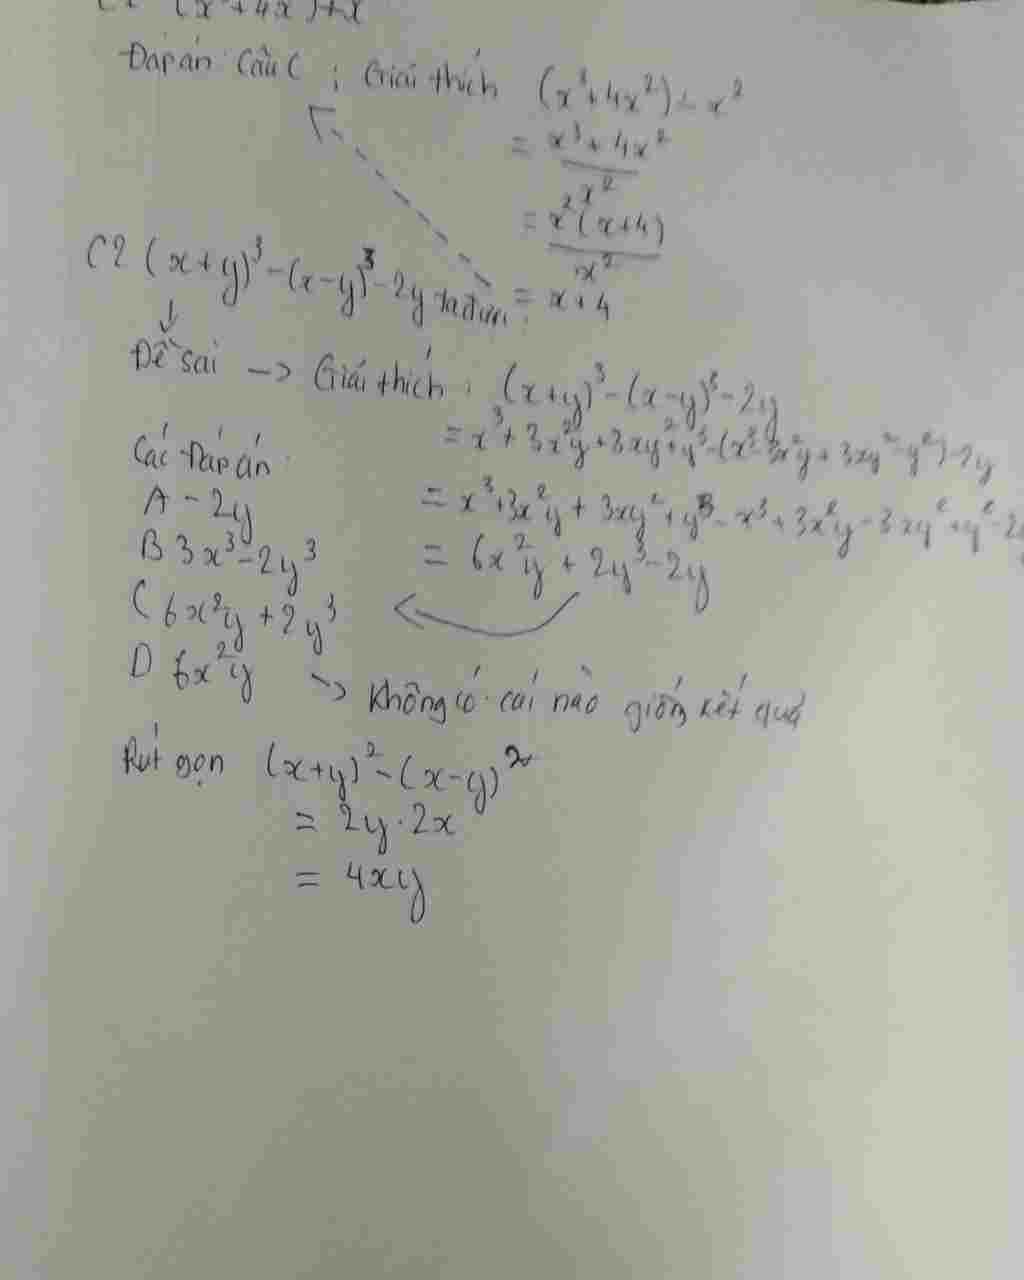 (x³+4x²)÷x
Đáp án Câu C ; Giải thích (x³+4x²) ÷ x²
= x³+4x²
x²
= x²(x+4)
x²
= x+4
C2 (x+y)³-(x-y)³-2y ta được:
Đề sai -> Giải thích: (x+y)³-(x-y)³-2y
= x³+3x²y+3xy²+y³-(x³-3x²y+3xy²-y³)-2y
= x³+3x²y+3xy²+y³-x³+3x²y-3xy²+y³-2y
= 6x²y+2y³-2y
Các đáp án
A -2y
B 3x³-2y³
C 6x²y+2y³
D 6x²y -> Không có cái nào giống kết quả
Rút gọn (x+y)²-(x-y)²
= 2y.2x
= 4xy